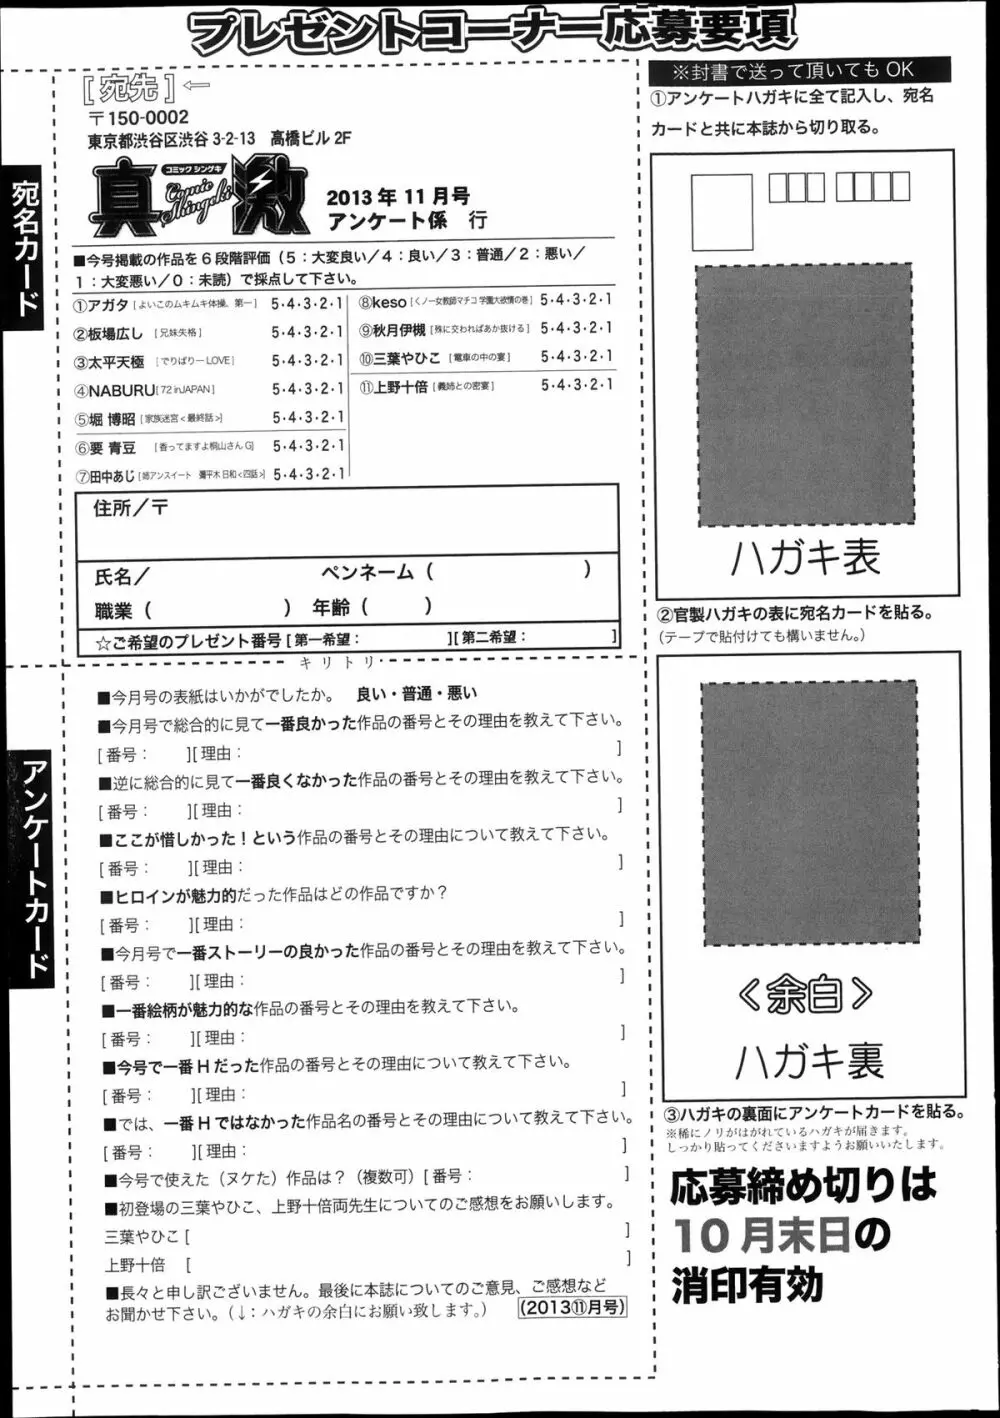 プレゼントコーナー応募要項
[宛先]←
〒150-0002
東京都渋谷区渋谷 3-2-13　髙橋ビル 2F
コミックシンゲキ
真激
Comic Shingeki
2013 年 11 月号
アンケート係　行
宛名カード
■今号掲載の作品を 6 段階評価（5：大変良い／4：良い／3：普通／2：悪い／
1：大変悪い／0：未読）で採点して下さい。
①アガタ [よいこのムキムキ体操、第一] 5・4・3・2・1
②板場広し [兄妹失格] 5・4・3・2・1
③太平天極 [でりばりーLOVE] 5・4・3・2・1
④NABURU [72 inJAPAN] 5・4・3・2・1
⑤堀 博昭 [家族迷宮<最終話>] 5・4・3・2・1
⑥要 青豆 [香ってますよ桐山さん G] 5・4・3・2・1
⑦田中あじ [姉アンスイート　彌平木 日和<四話>] 5・4・3・2・1
⑧keso [くノ一女教師マチコ 学園大欲情の巻] 5・4・3・2・1
⑨秋月伊槻 [殊に交わればあか抜ける] 5・4・3・2・1
⑩三葉やひこ [電車の中の宴] 5・4・3・2・1
⑪上野十倍 [義姉との密宴] 5・4・3・2・1
住所／〒
氏名／　ペンネーム（　）
職業（　）　年齢（　）
☆ご希望のプレゼント番号 [第一希望：　][第二希望：　]
キリトリ
アンケートカード
■今月号の表紙はいかがでしたか。　良い・普通・悪い
■今月号で総合的に見て一番良かった作品の番号とその理由を教えて下さい。
[番号：　][理由：　]
■逆に総合的に見て一番良くなかった作品の番号とその理由を教えて下さい。
[番号：　][理由：　]
■ここが惜しかった！という作品の番号とその理由について教えて下さい。
[番号：　][理由：　]
■ヒロインが魅力的だった作品はどの作品ですか？
[番号：　][理由：　]
■今月号で一番ストーリーの良かった作品の番号とその理由を教えて下さい。
[番号：　][理由：　]
■一番絵柄が魅力的な作品の番号とその理由を教えて下さい。
[番号：　][理由：　]
■今号で一番 H だった作品の番号とその理由について教えて下さい。
[番号：　][理由：　]
■では、一番 H ではなかった作品名の番号とその理由について教えて下さい。
[番号：　][理由：　]
■今号で使えた（ヌケた）作品は？（複数可）[番号：　]
■初登場の三葉やひこ、上野十倍両先生についてのご感想をお願いします。
三葉やひこ [　]
上野十倍　[　]
■長々と申し訳ございません。最後に本誌についてのご意見、ご感想など
お聞かせ下さい。（↓：ハガキの余白にお願い致します。）
(2013⑪月号)
※封書で送って頂いても OK
①アンケートハガキに全て記入し、宛名
カードと共に本誌から切り取る。
ハガキ表
②官製ハガキの表に宛名カードを貼る。
（テープで貼付けても構いません。）
＜余白＞
ハガキ裏
③ハガキの裏面にアンケートカードを貼る。
※稀にノリがはがれているハガキが届きます。
しっかり貼ってくださいますようお願いいたします。
応募締め切りは
10 月末日の
消印有効